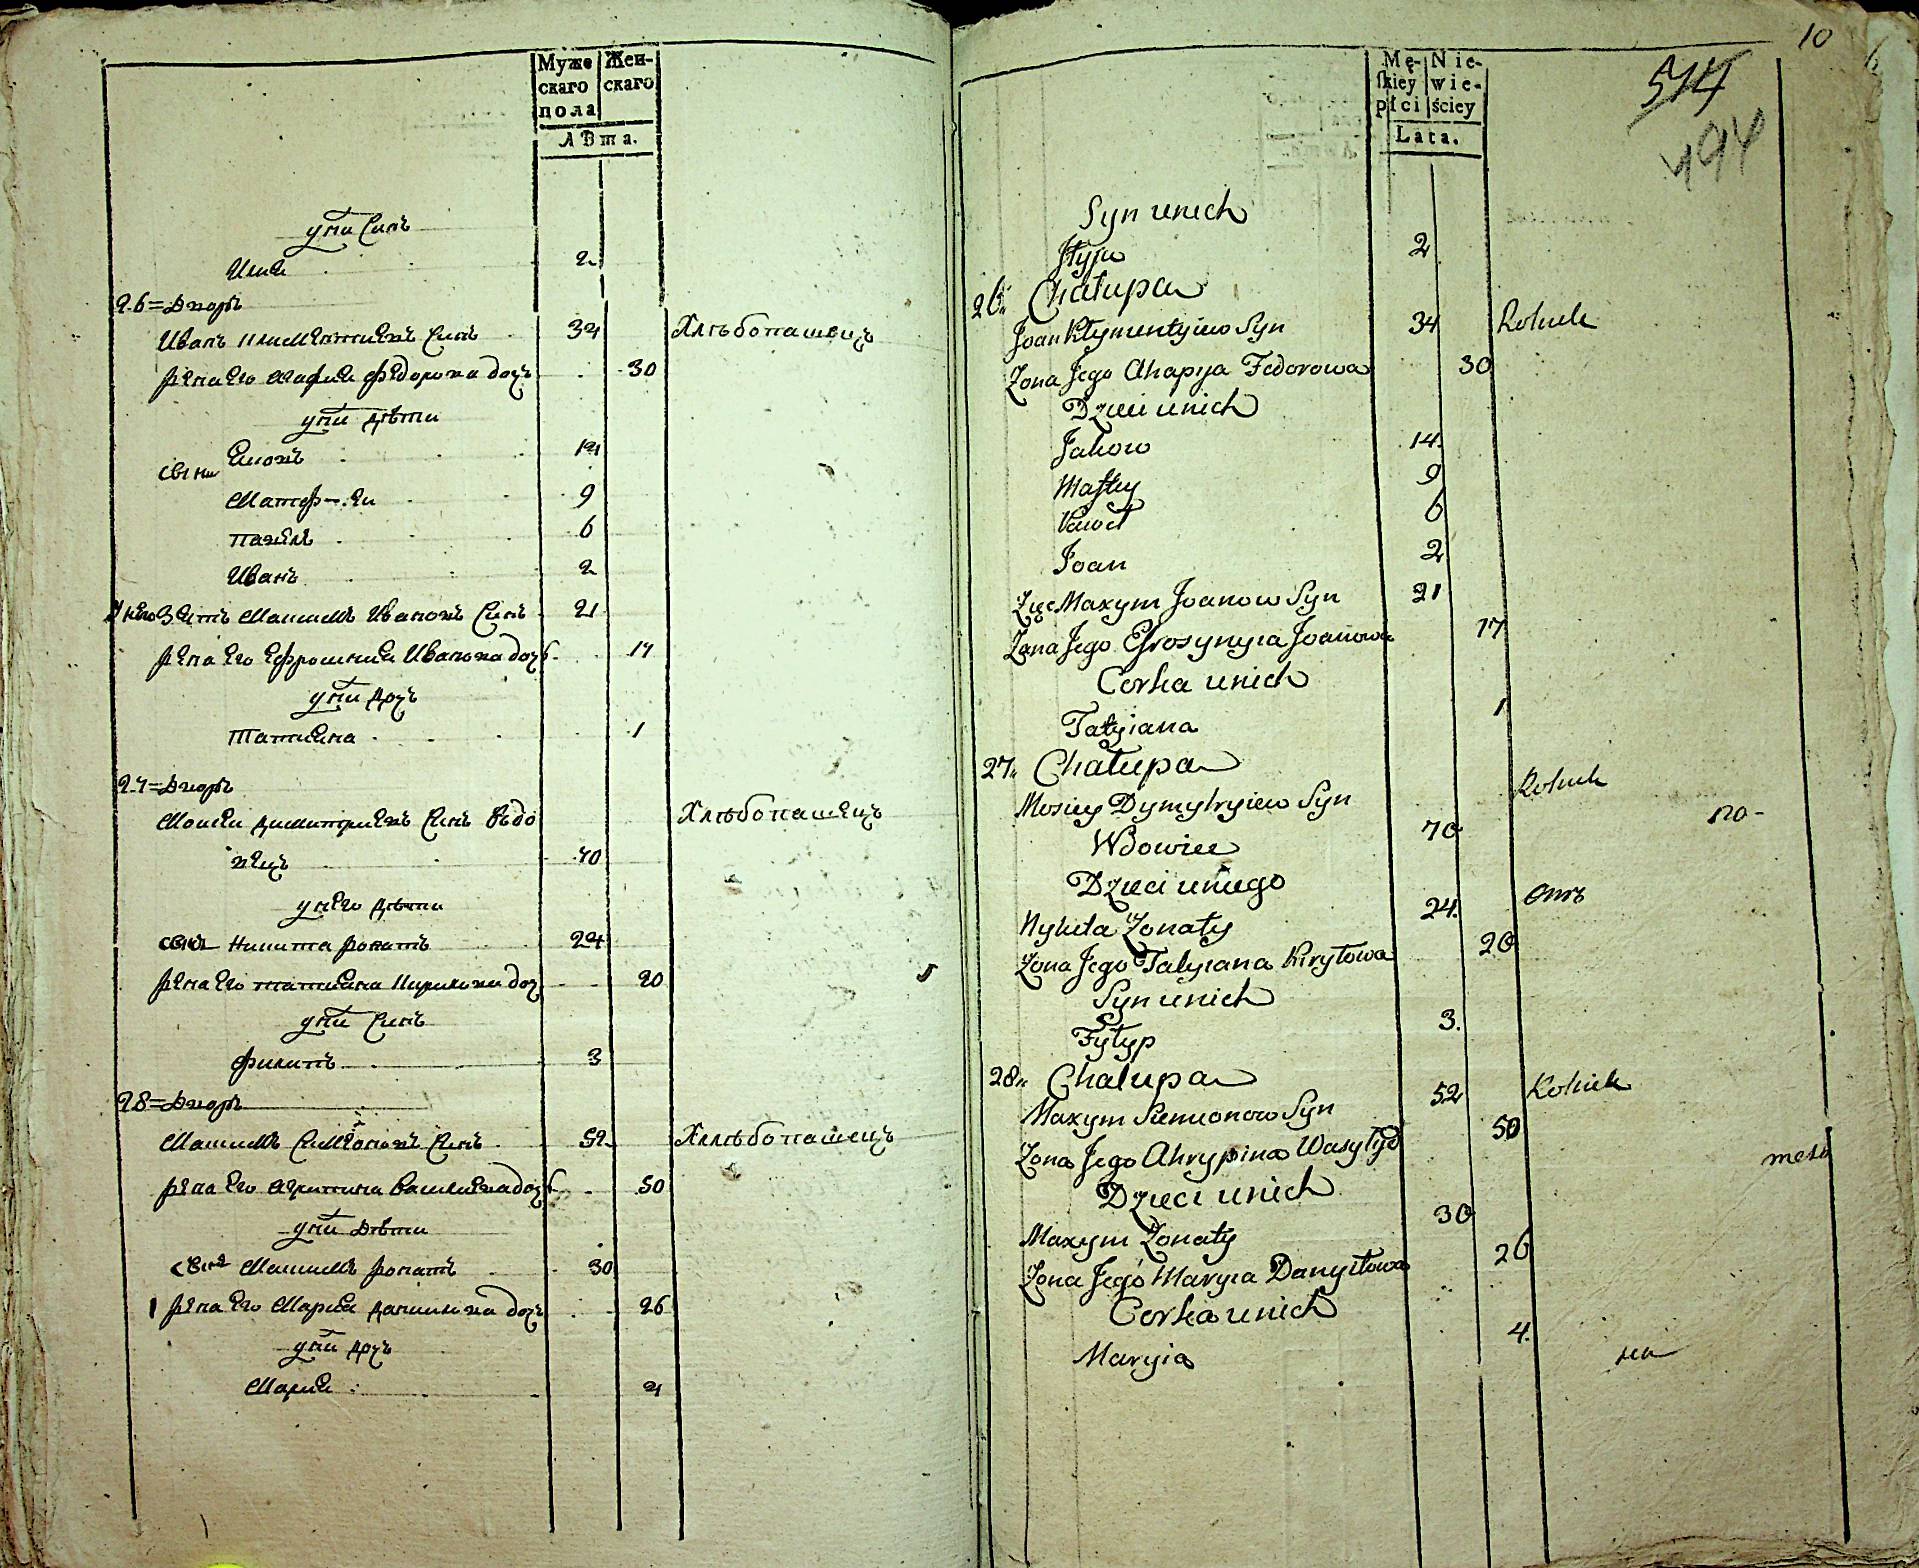 Муже
скаго
пола
Жен-
скаго
ЛѢта.
у ни Синъ
Илия 2
26=Дворъ
Иванъ Климентиевъ Синъ 34 Хлѣбопашецъ
жена Его Агафия Федорова дочъ 30
у ни дѣти
Яковъ 14
Матфей 9
павелъ 6
Иванъ 2
У него Зять Максимъ Ивановъ Синъ 21
жена Его Ефросиния Иванова дочь 17
у ни дочъ
Татияна 1
27=Дворъ
Моисей димитриевъ Синъ Вдо Хлѣбопашецъ
вецъ 70
у него дѣти
Никита жонатъ 24
жена Его татияна Кирилова доч 20
у ни Синъ
Филипъ 3
28=Дворъ
Максимъ Симеоновъ Синъ 52 Хлѣбопашецъ
жена Его Агрипина Василиева дочь 50
у ни Дѣти
Максимъ жонатъ 30
жена Его Мария данилова дочъ 26
у ни дочъ
Мария 4
10
Mę-
skiey
płci
Nie-
wie-
ściey
Lata.
574
494
Syn unich
Jłyja 2
26 Chałupa
Joan Kłymentyiew Syn 34 Rolnik
Zona Jego Ahapija Fedorowa 30
Dzieci unich
Jakow 14
Maftey 9
Paweł 6
Joan 2
Zięć Maxym Joanow Syn 21
Zona Jego Efrosynyia Joanowa 17
Corka unich
Tatyiana 1
27 Chałupa
Mosiey Dymytryiew Syn Rolnik
Wdowiec 70
Dzieci uniego
Nykita Zonaty 24
Zona Jego Tatyiana Kiryłowa 20
Syn unich
Fyłyp 3
28 Chałupa
Maxym Siemionow Syn 52 Rolnik
Zona Jego Ahrypina Wasyly 50
Dzieci unich
Maxym Zonaty 30
Zona Jego Maryia Danyłowa 26
Corka unich
Maryia 4